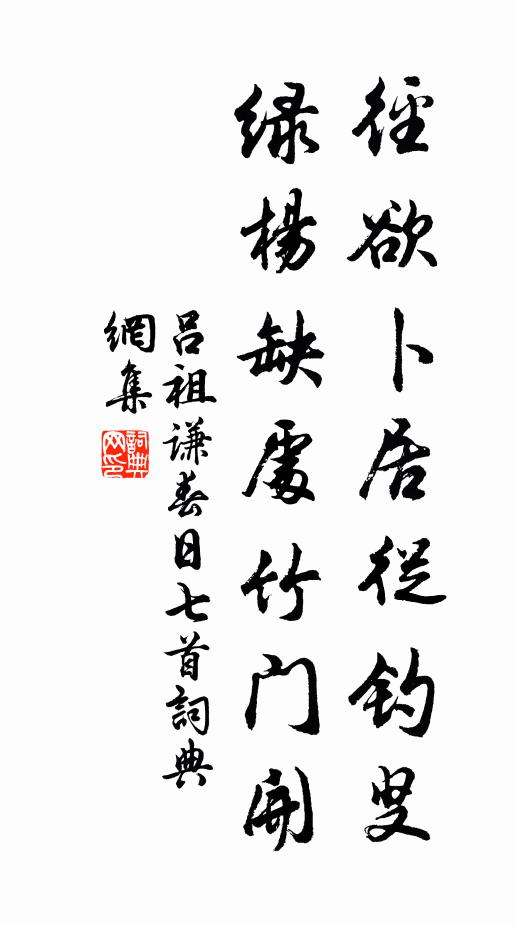 徑欲卜居從釣叟
綠楊缺處竹門開
呂祖謙春日七首詞典
網集
詞典網印